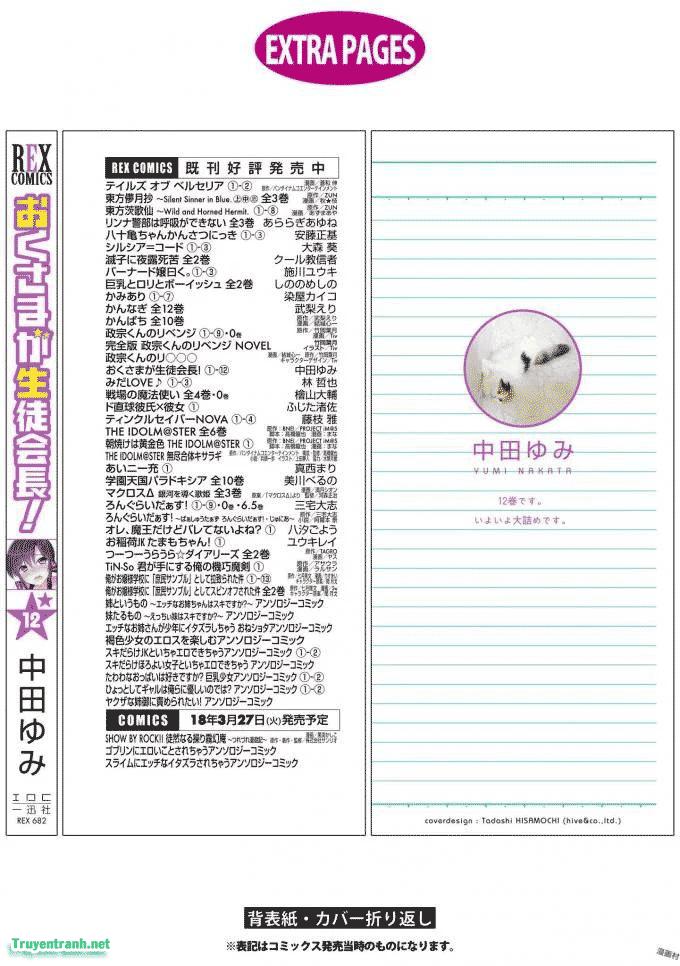 EXTRA PAGES
REX
COMICS
おくさまが生徒会長!
12
中田ゆみ
一迅社
REX 682
REX COMICS 既刊好評発売中
テイルズ オブ ベルセリア ①-②
東方儚月抄 ~Silent Sinner in Blue. 上中下 全3巻 原作/ZUN 漫画/秋★枝
東方茨歌仙 ~Wild and Horned Hermit. ①-⑧ 原作/ZUN 漫画/あずまあや
リンナ警部は呼吸ができない 全3巻 あららぎあゆね
八十亀ちゃんかんさつにっき ①-③ 安藤正基
シルシア=コード ①-③ 大森 葵
滅子に夜露死苦 全2巻 クール教信者
バーナード嬢曰く。①-③ 施川ユウキ
巨乳とロリとボーイッシュ 全2巻 しののめしの
かみあり ①-⑦ 染屋カイコ
かんなぎ 全12巻 武梨えり
かんぱち 全10巻 原作/武梨えり 漫画/結城心一
政宗くんのリベンジ ①-⑨・0巻 原作/竹岡葉月 漫画/Tiv
完全版 政宗くんのリベンジ NOVEL 竹岡葉月 イラスト/Tiv
政宗くんのリ○○○ 漫画/結城心一 原作/竹岡葉月 キャラクターデザイン/Tiv
おくさまが生徒会長! ①-⑫ 中田ゆみ
みだLOVE♪ ①-③ 林 哲也
戦場の魔法使い 全4巻・0巻 檜山大輔
ド直球彼氏×彼女 ① ふじた渚佐
ティンクルセイバーNOVA ①-④ 藤枝 雅
THE IDOLM@STER 全6巻 原作:BNEI/PROJECT iM@S 脚本:高橋龍也 漫画:まな
朝焼けは黄金色 THE IDOLM@STER ① 原作:BNEI/PROJECT iM@S 脚本:高橋龍也 漫画:まな
THE IDOLM@STER 無尽合体キサラギ
あいニー充 ① 真西まり
学園天国パラドキシア 全10巻 美川べるの
マクロスΔ 銀河を導く歌姫 全3巻
ろんぐらいだぁす! ①-⑨・0巻・6.5巻 三宅大志
ろんぐらいだぁす!
オレ、魔王だけどバレてないよね? ① 八汐ごよう
お稲荷JKたまもちゃん! ① ユウキレイ
つーつーうらうら☆ダイアリーズ 全2巻 原作/TAGRO 漫画/ヤス
TiN-So 君が手にする俺の機巧魔剣 ① 原作/アサウラ
俺がお嬢様学校に「庶民サンプル」として拉致られた件 ①-⑬
俺がお嬢様学校に「庶民サンプル」としてスピンオフされた件 全2巻
姉というもの ~エッチなお姉ちゃんはスキですか?~ アンソロジーコミック
妹たるもの ~えっちい妹はスキですか?~ アンソロジーコミック
エッチなお姉さんが少年にイタズラしちゃう おねショタアンソロジーコミック
褐色少女のエロスを楽しむアンソロジーコミック
スキだらけJKといちゃエロできちゃうアンソロジーコミック ①-②
スキだらけほろよい女子といちゃエロできちゃうアンソロジーコミック
たわわなおっぱいは好きですか? 巨乳少女アンソロジーコミック ①-②
ひょっとしてギャルは俺らに優しいのでは? アンソロジーコミック ①-②
ヤクザな姉御に責められたい! アンソロジーコミック
COMICS 18年3月27日(火)発売予定
SHOW BY ROCK!! 徒然なる操り霧幻庵
ゴブリンにエロいことされちゃうアンソロジーコミック
スライムにエッチなイタズラされちゃうアンソロジーコミック
中田ゆみ
YUMI NAKATA
12巻です。
いよいよ大詰めです。
coverdesign : Tadashi HISAMOCHI (hive&co.,ltd.)
背表紙・カバー折り返し
※表記はコミックス発売当時のものになります。
Truyentranh.net
漫画村